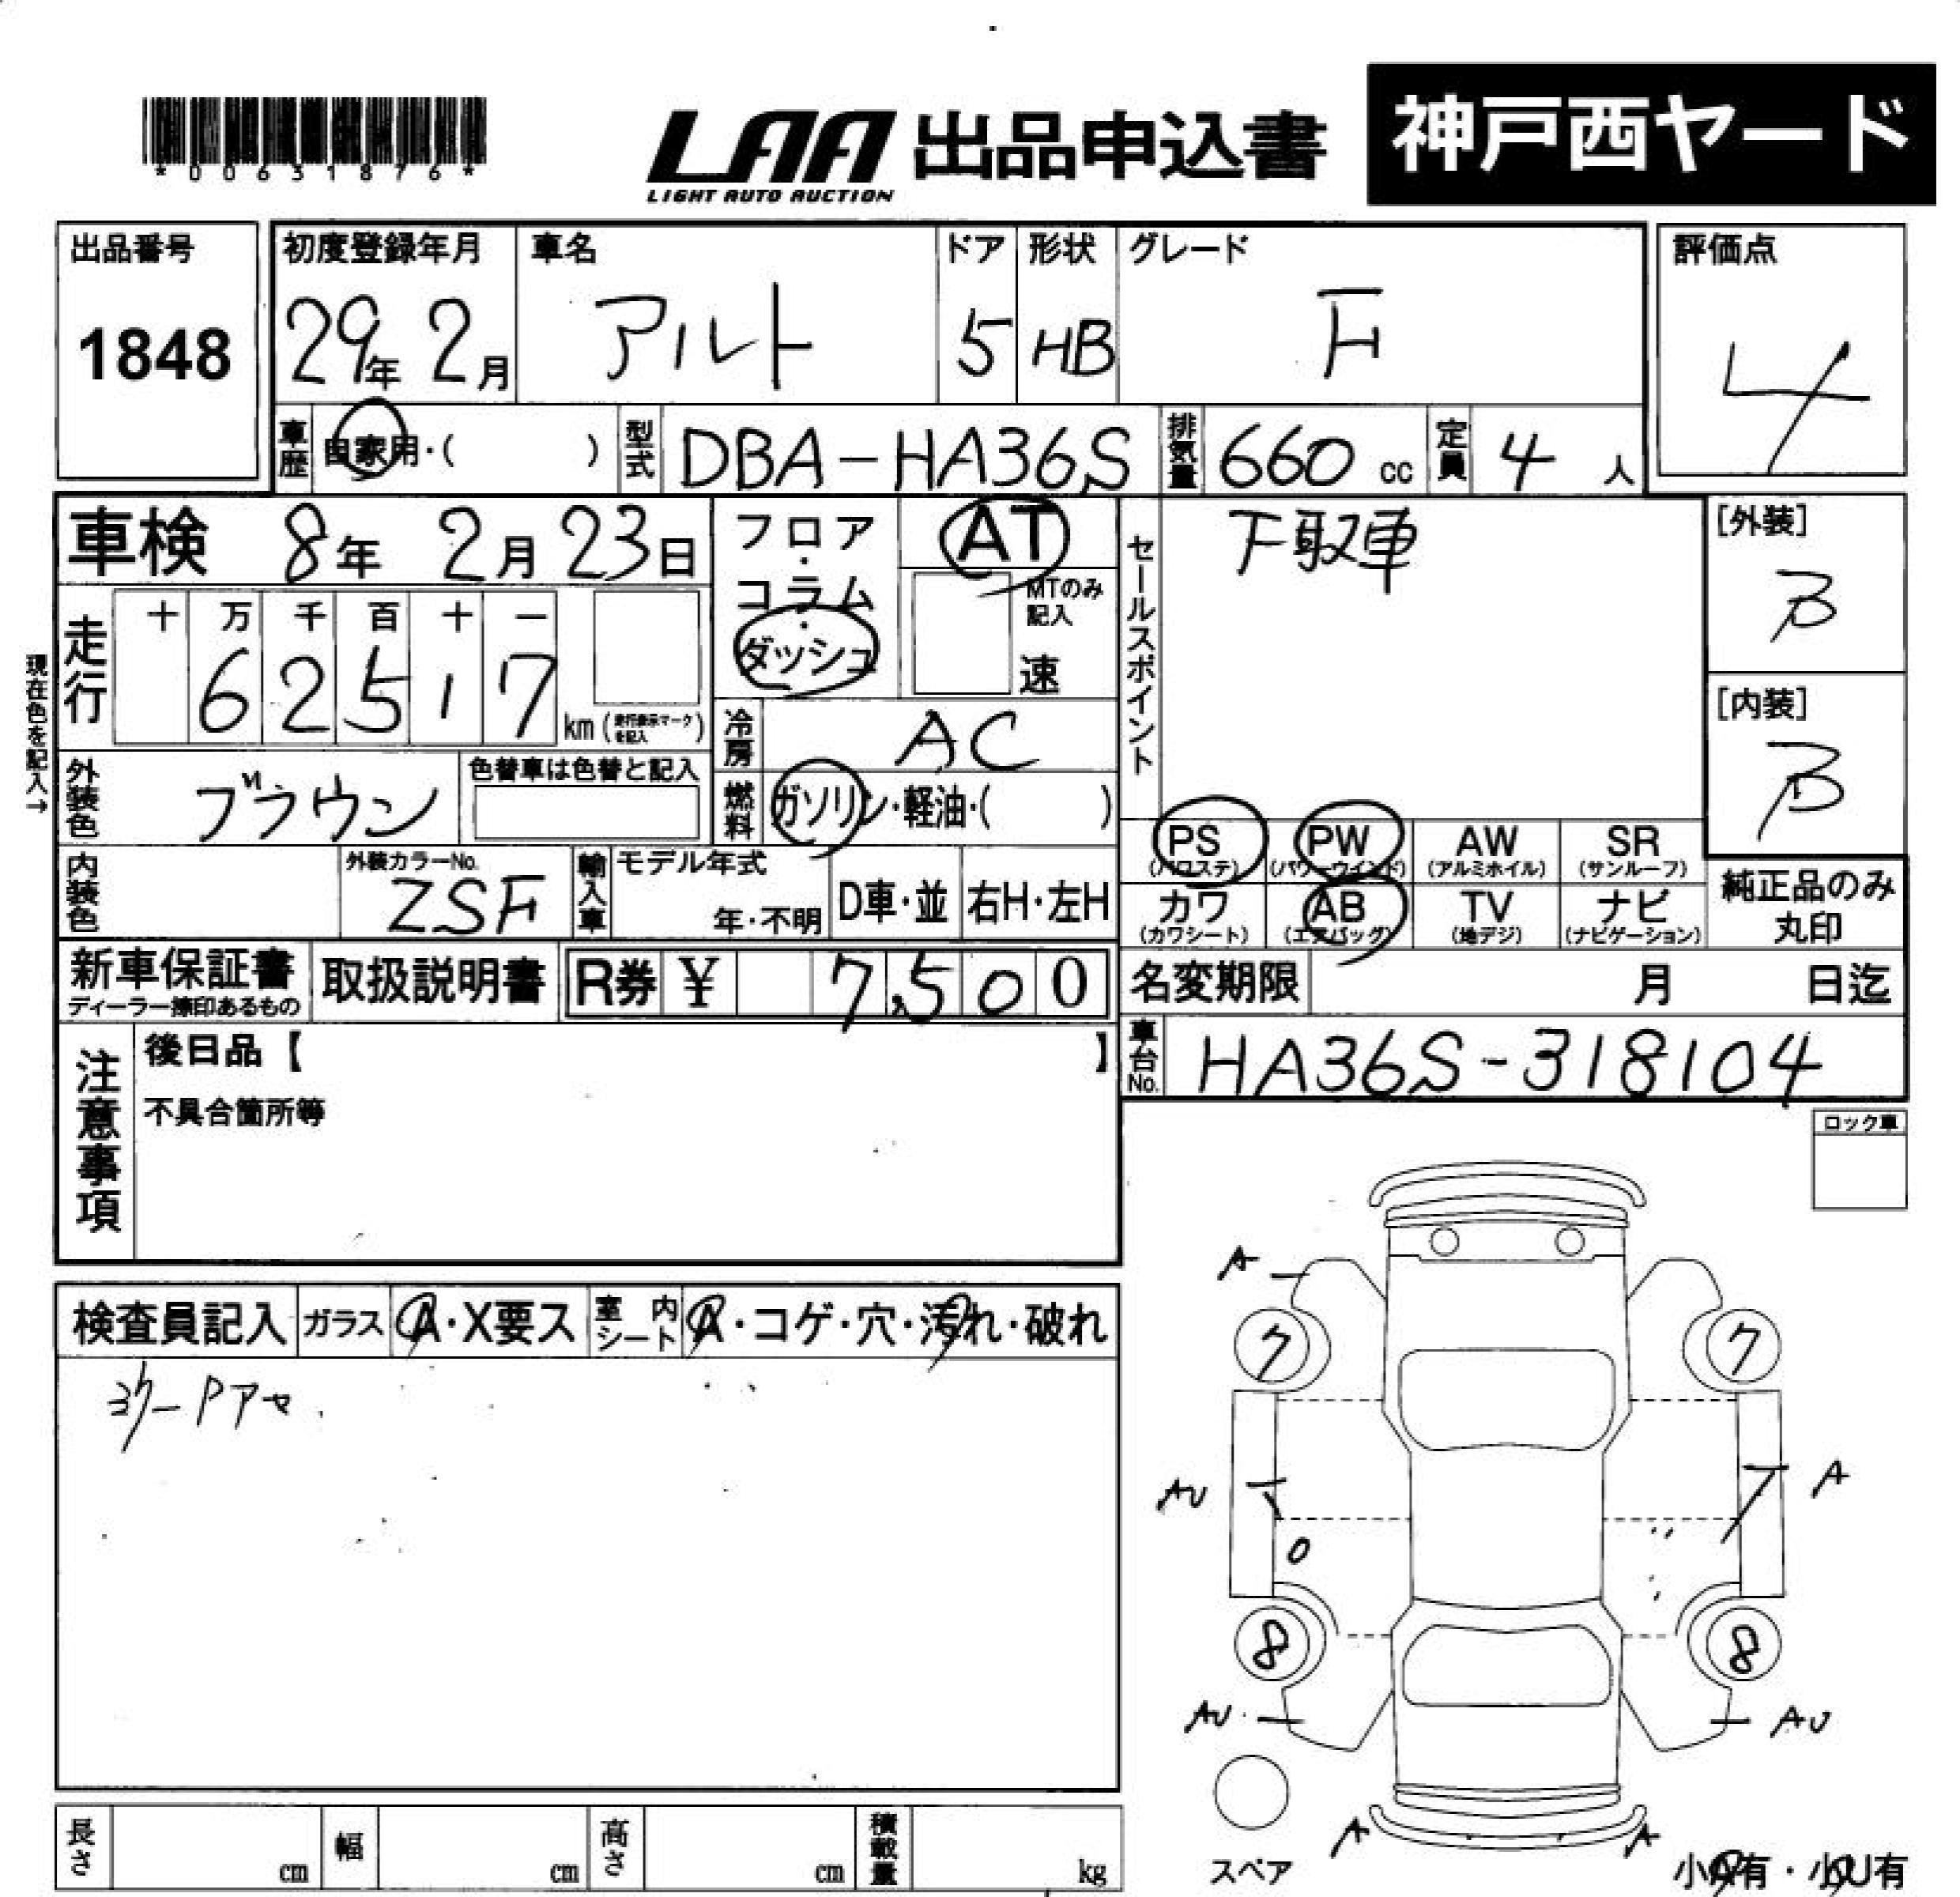 *00631876*
LAA 出品申込書 神戸西ヤード
LIGHT AUTO AUCTION
出品番号 1848
初度登録年月 29年 2月
車名 アルト
ドア 5
形状 HB
グレード F
評価点 4
車歴 自家用・( )
型式 DBA-HA36S
排気量 660 cc
定員 4 人
車検 8年 2月 23日
フロア・コラム・ダッシュ
AT
MTのみ記入
速
セールスポイント 下取車
[外装] B
[内装] B
現在色を記入→
走行 十 万 千 百 十 一
6 2 5 1 7 km (走行表示マークを記入)
冷房 AC
外装色 ブラウンM
色替車は色替と記入
燃料 ガソリン・軽油・( )
内装色
外装カラーNo. ZSF
輸入車 モデル年式 年・不明 D車・並 右H・左H
PS (パワステ) PW (パワーウインド) AW (アルミホイル) SR (サンルーフ)
カワ (カワシート) AB (エアバッグ) TV (地デジ) ナビ (ナビゲーション)
純正品のみ丸印
新車保証書 ディーラー捺印あるもの
取扱説明書
R券 ¥ 7,500
名変期限 月 日迄
車台No. HA36S-318104
注意事項
後日品【 】
不具合箇所等
ロック車
検査員記入 ガラス A・X要ス 室内シート A・コゲ・穴・汚れ・破れ
A
7 7
AU A
8 8
AU AU
A A
スペア
小A有・小U有
長さ cm 幅 cm 高さ cm 積載量 kg